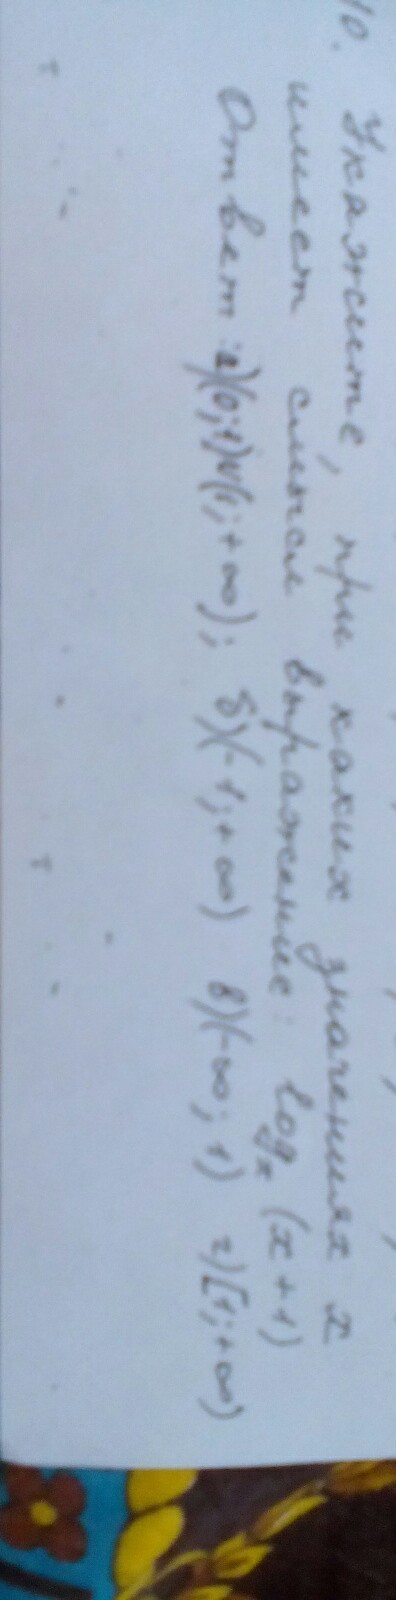 10. Укажите, при каких значениях x
имеет смысл выражение: log_x (x+1)
Ответ: а)(0;1)∪(1;+∞); б)(-1;+∞) в)(-∞;1) г)[1;+∞)